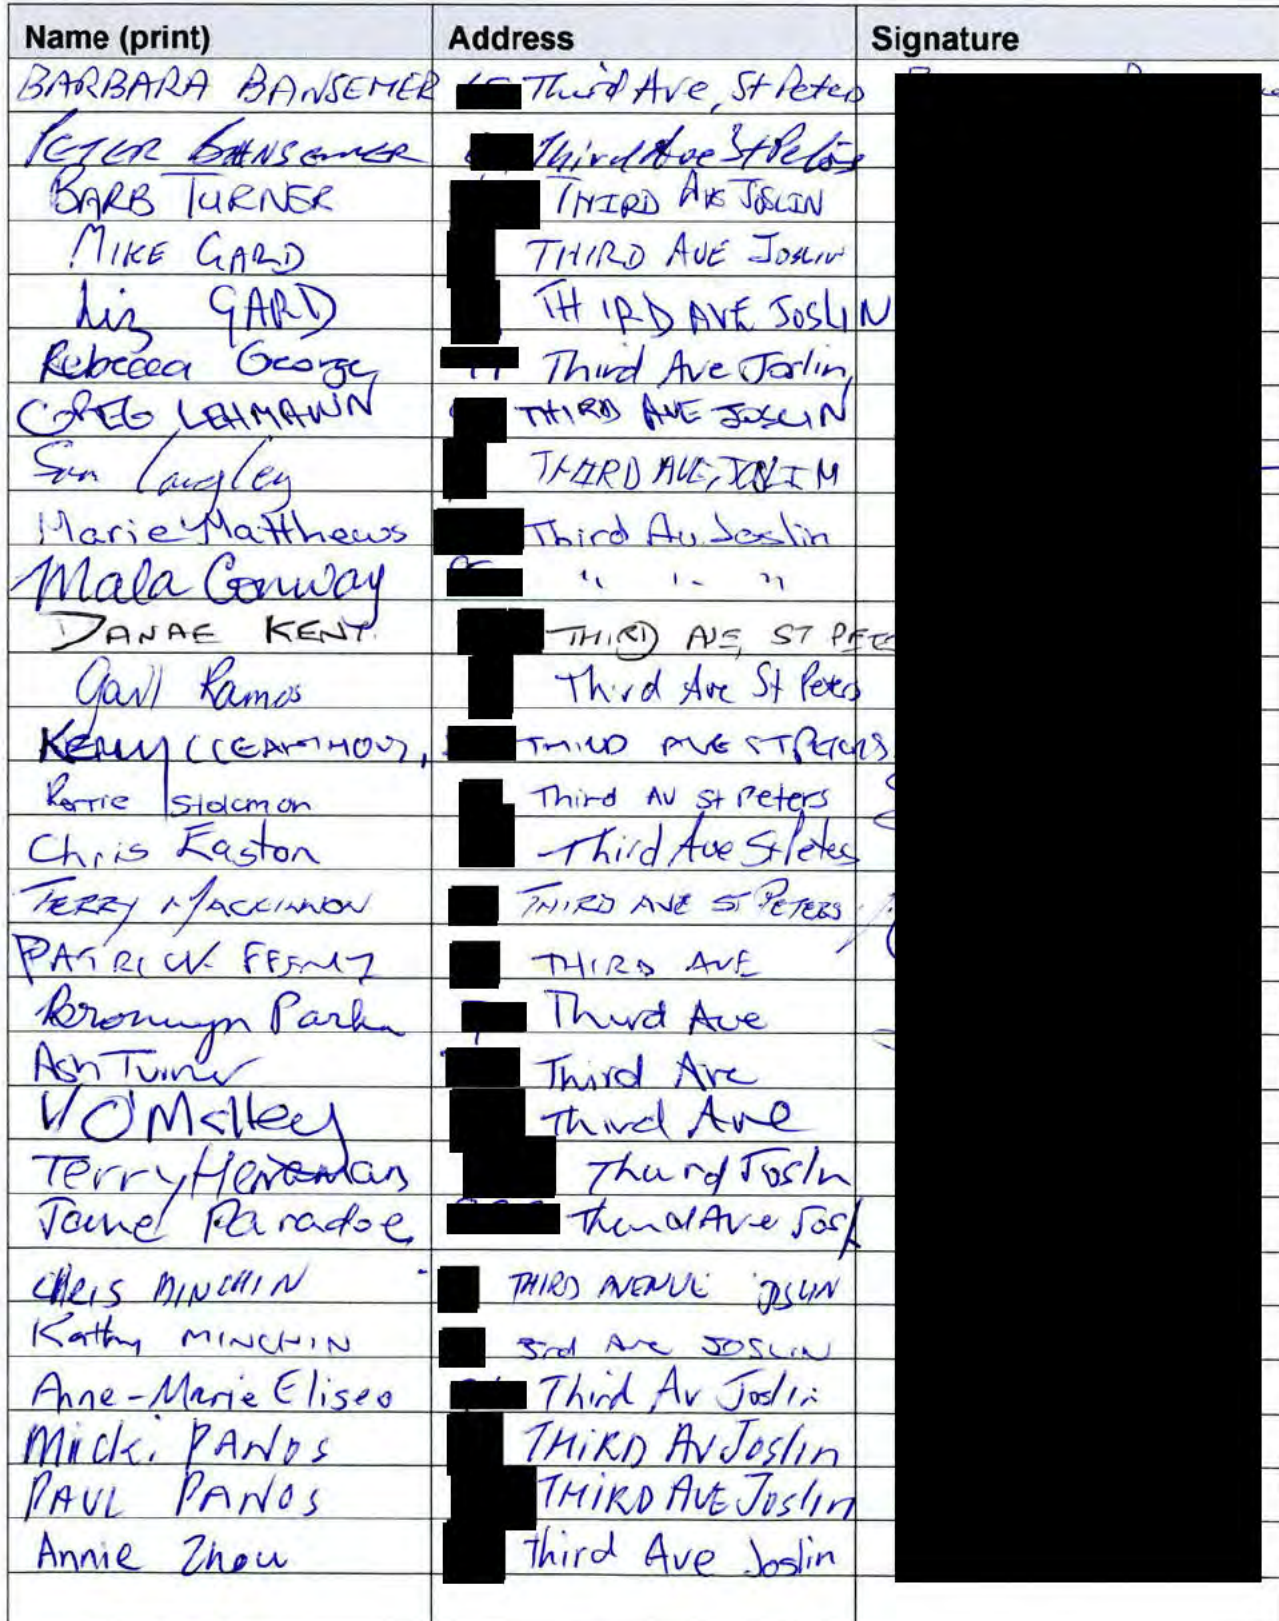 Name (print) Address Signature
BARBARA BANSEMER Third Ave, St Peters
PETER BANSEMER Third Ave St Peters
BARB TURNER THIRD AVE JOSLIN
MIKE GARD THIRD AVE JOSLIN
Liz GARD THIRD AVE JOSLIN
Rebecca George Third Ave Joslin
GREG LEHMANN THIRD AVE JOSLIN
Sam Langley THIRD AVE, JOSLIM
Marie Matthews Third Av Joslin
Mala Conway " " "
DANAE KENT THIRD AVE, ST PETE
Gavl Ramos Third Ave St Peters
KERRY THIRD AVE ST PETERS
Third AV St Peters
Chris Easton Third Ave St Peters
TERRY MACKINNON THIRD AVE ST PETERS
PATRICK THIRD AVE
Bronwyn Parker Third Ave
Ash Turner Third Ave
V O'Malley Third Ave
Terry Third Joslin
Paradoe Third Ave Josl
CHRIS MINCHIN THIRD AVENUE JOSLIN
Kathy MINCHIN 3rd Ave JOSLIN
Anne-Marie Eliseo Third Av Joslin
Micki PANOS THIRD AV Joslin
PAUL PANOS THIRD AVE Joslin
Annie Zhou Third Ave Joslin